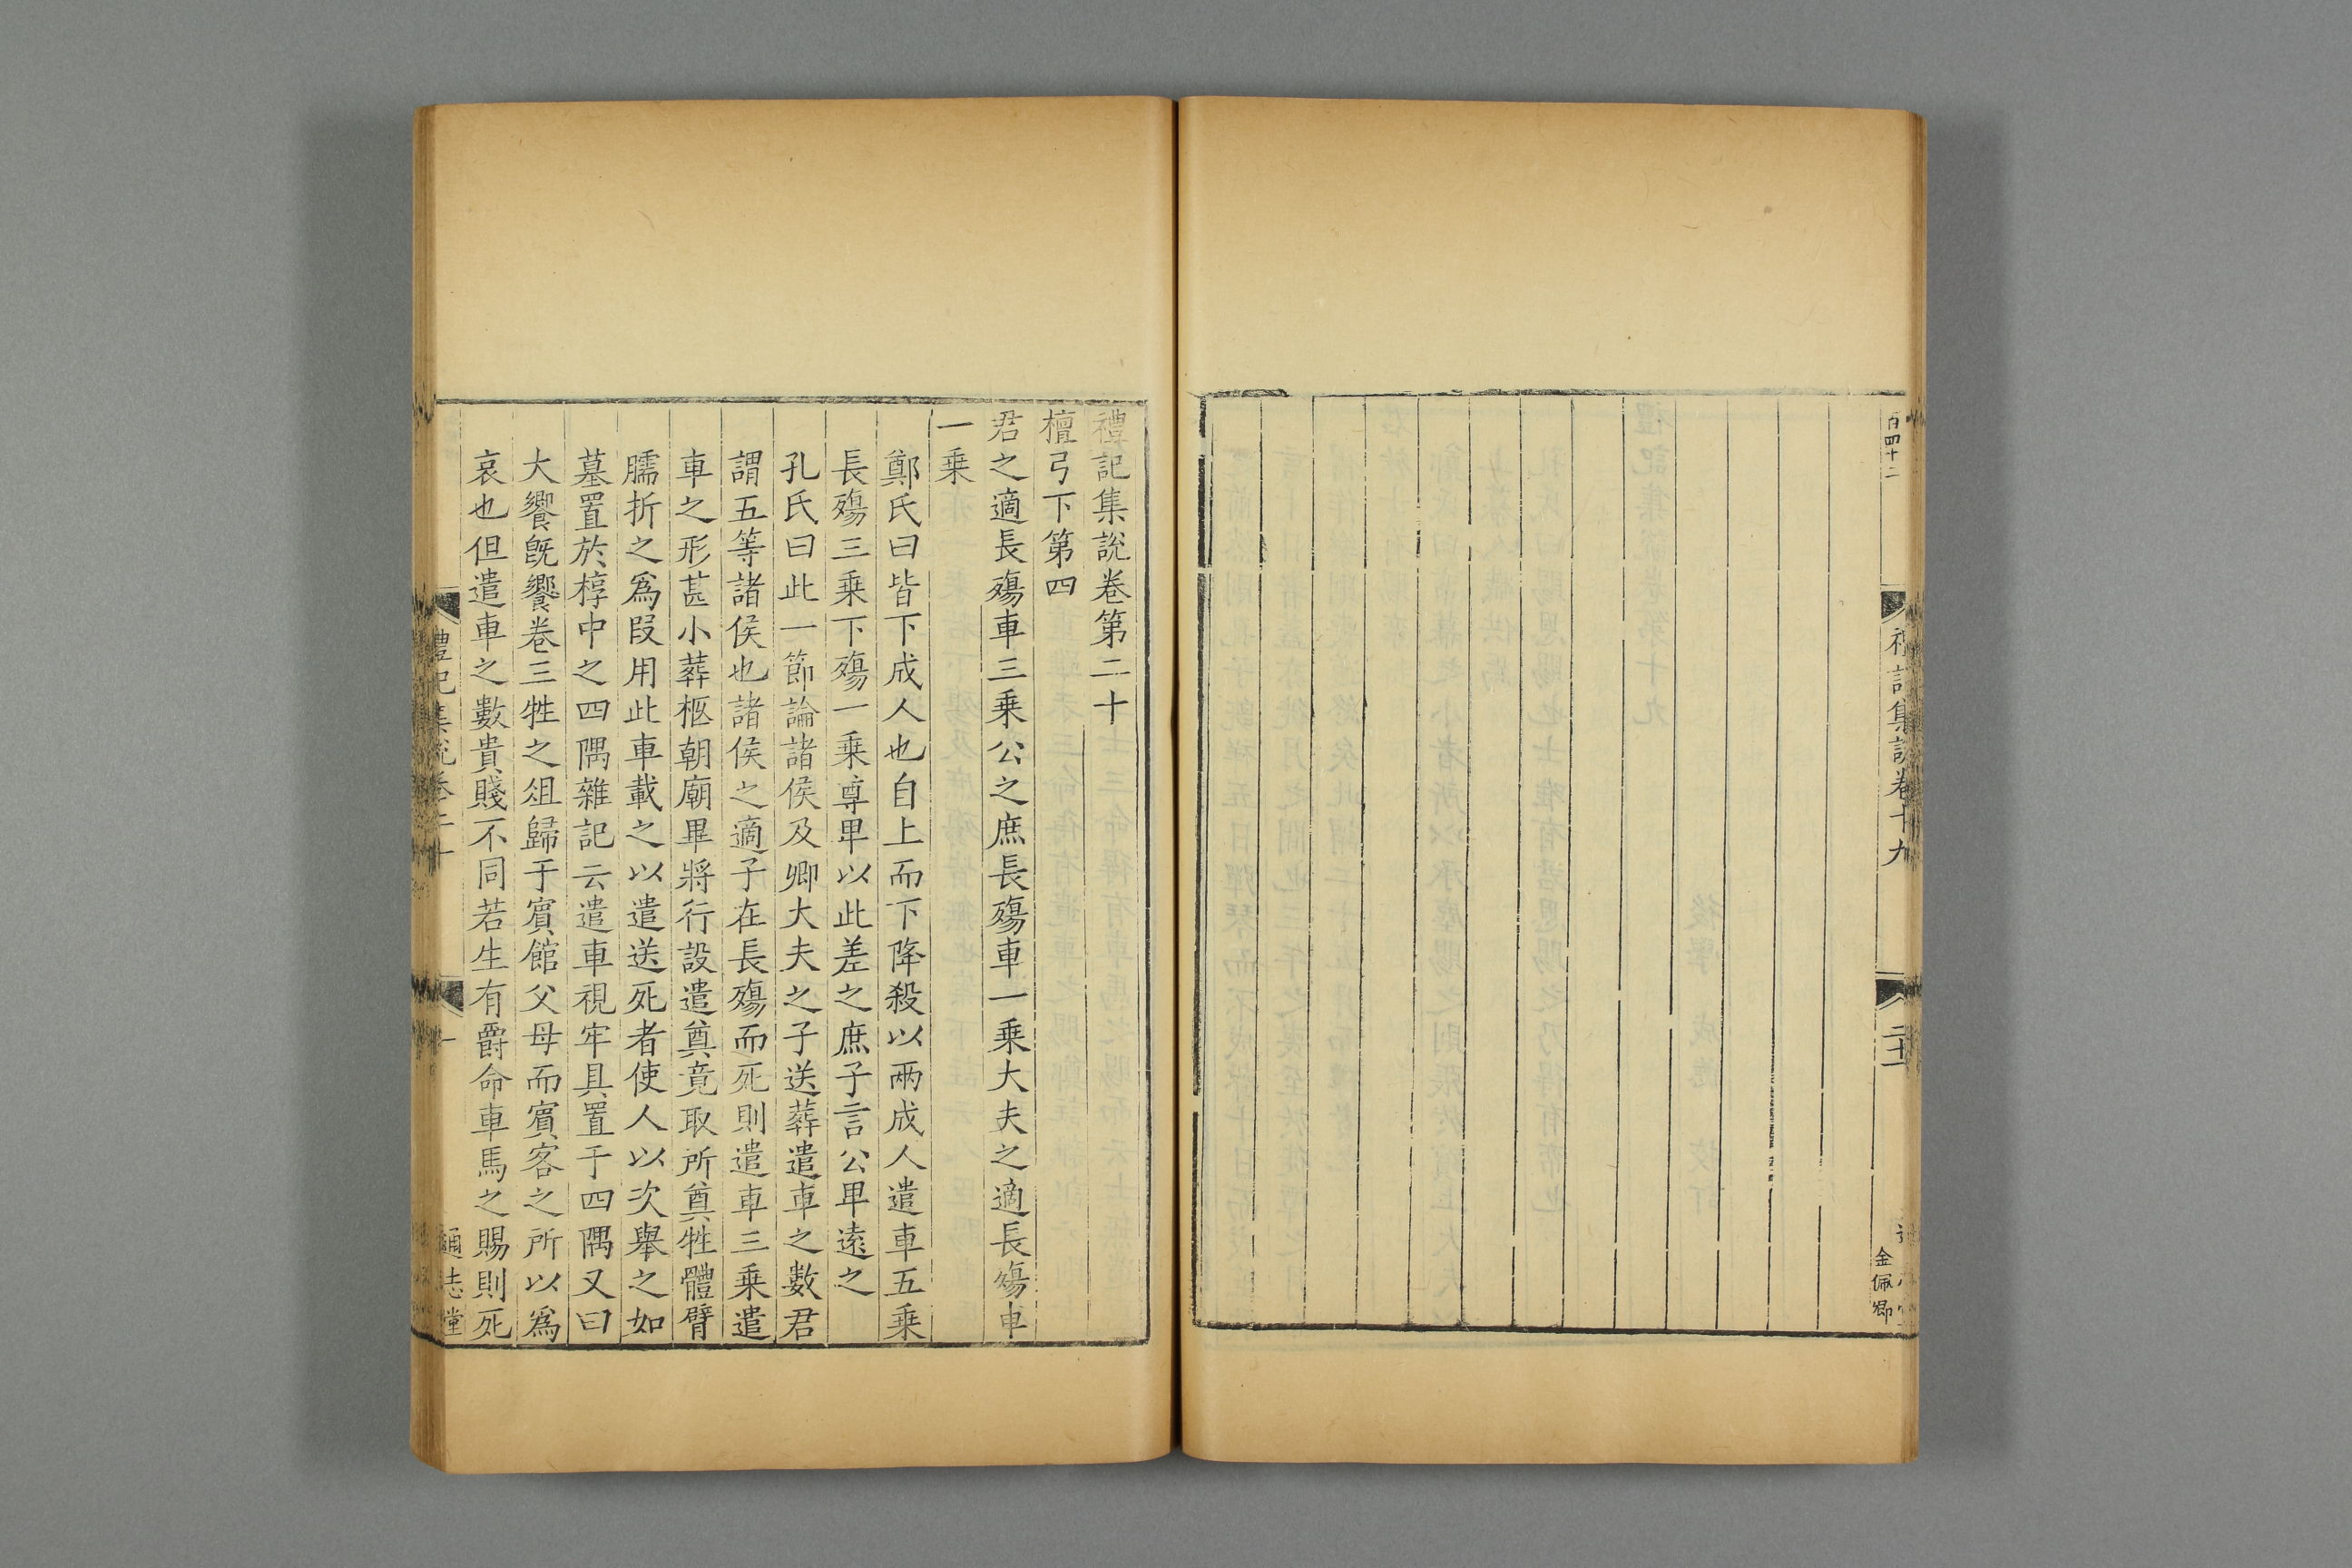 百四十二
禮記集說卷十九
二十二
金佩卿
禮記集說卷第二十
檀弓下第四
君之適長殤車三乘公之庶長殤車一乘大夫之適長殤車
一乘
鄭氏曰皆下成人也自上而下降殺以兩成人遣車五乘
長殤三乘下殤一乘尊卑以此差之庶子言公卑遠之
孔氏曰此一節論諸侯及卿大夫之子送葬遣車之數君
謂五等諸侯也諸侯之適子在長殤而死則遣車三乘遣
車之形甚小葬柩朝廟畢將行設遣奠竟取所奠牲體臂
臑折之爲段用此車載之以遣送死者使人以次舉之如
墓置於椁中之四隅雜記云遣車視牢具置于四隅又曰
大饗旣饗卷三牲之俎歸于賓館父母而賓客之所以爲
哀也但遣車之數貴賤不同若生有爵命車馬之賜則死
禮記集說卷二十
一
通志堂